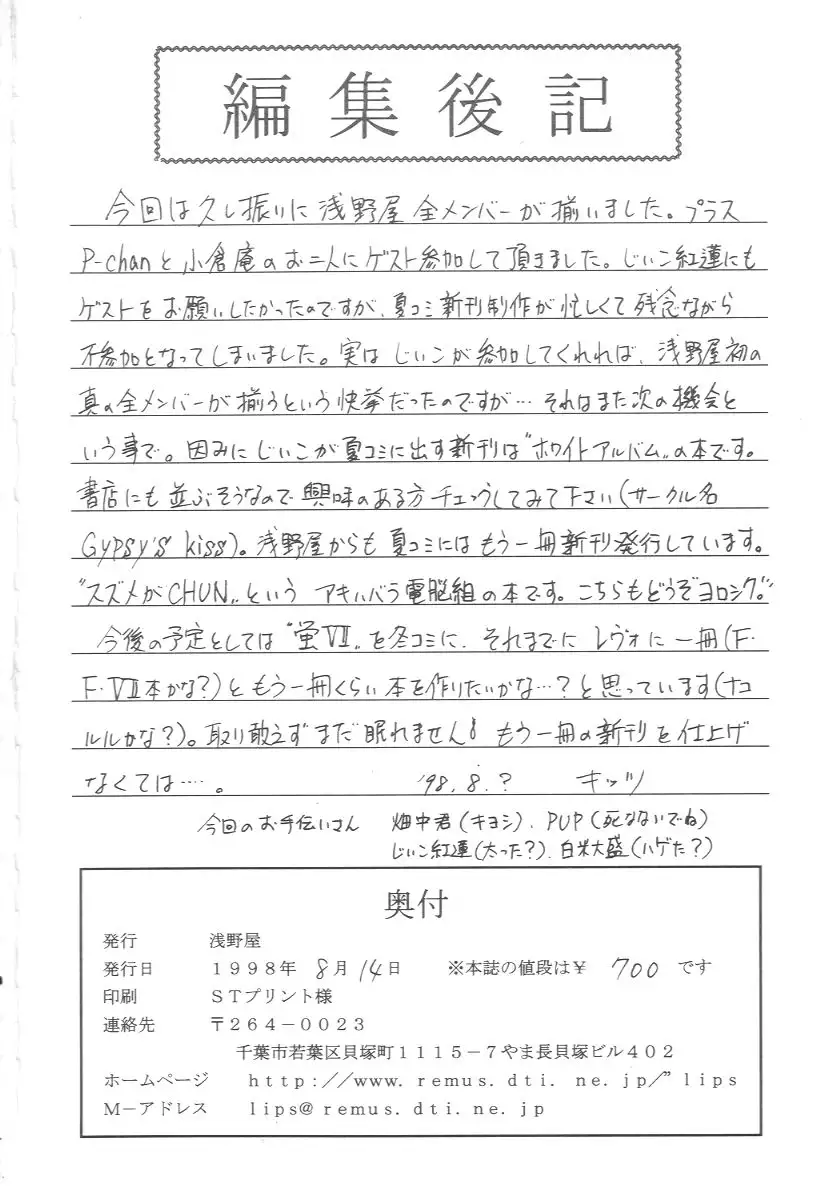 編集後記
今回は久し振りに浅野屋全メンバーが揃いました。プラス
P-chanと小倉庵のお二人にゲスト参加して頂きました。じぃこ紅蓮にも
ゲストをお願いしたかったのですが、夏コミ新刊制作が忙しくて残念ながら
不参加となってしまいました。実はじぃこが参加してくれれば、浅野屋初の
真の全メンバーが揃うという快挙だったのですが…それはまた次の機会と
いう事で。因みにじぃこが夏コミに出す新刊は“ホワイトアルバム„の本です。
書店にも並ぶそうなので興味のある方チェックしてみて下さい(サークル名
Gypsy's kiss)。浅野屋からも夏コミにはもう一冊新刊発行しています。
“スズメがCHUN„というアキハバラ電脳組の本です。こちらもどうぞヨロシク。
今後の予定としては“蛍VII„を冬コミに、それまでにレヴォに一冊(F.
F.VII本かな?)ともう一冊くらい本を作りたいかな…?と思っています(ナコ
ルルかな?)。取り敢えずまだ眠れません! もう一冊の新刊を仕上げ
なくては…。 '98.8.? キッツ
今回のお手伝いさん 畑中君(キヨシ)、PUP(死なないでね)
じぃこ紅蓮(太った?)、白米大盛(ハゲた?)
奥付
発行 浅野屋
発行日 1998年 8月14日 ※本誌の値段は¥ 700 です
印刷 STプリント様
連絡先 〒264-0023
千葉市若葉区貝塚町1115-7やま長貝塚ビル402
ホームページ http://www.remus.dti.ne.jp/”lips
M-アドレス lips@remus.dti.ne.jp